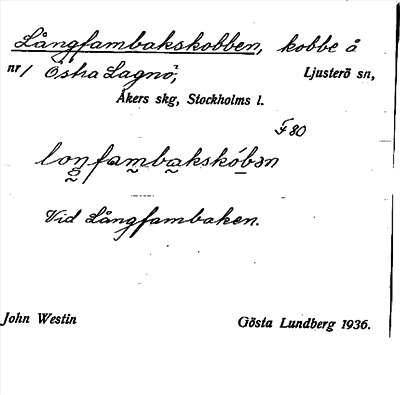 Långfambakskobben, kobbe å
nr 1 Östra Lagnö, Ljusterö sn,
Åkers skg, Stockholms l.
F 80
loŋfambakskóbən
Vid Långfambaken.
John Westin Gösta Lundberg 1936.